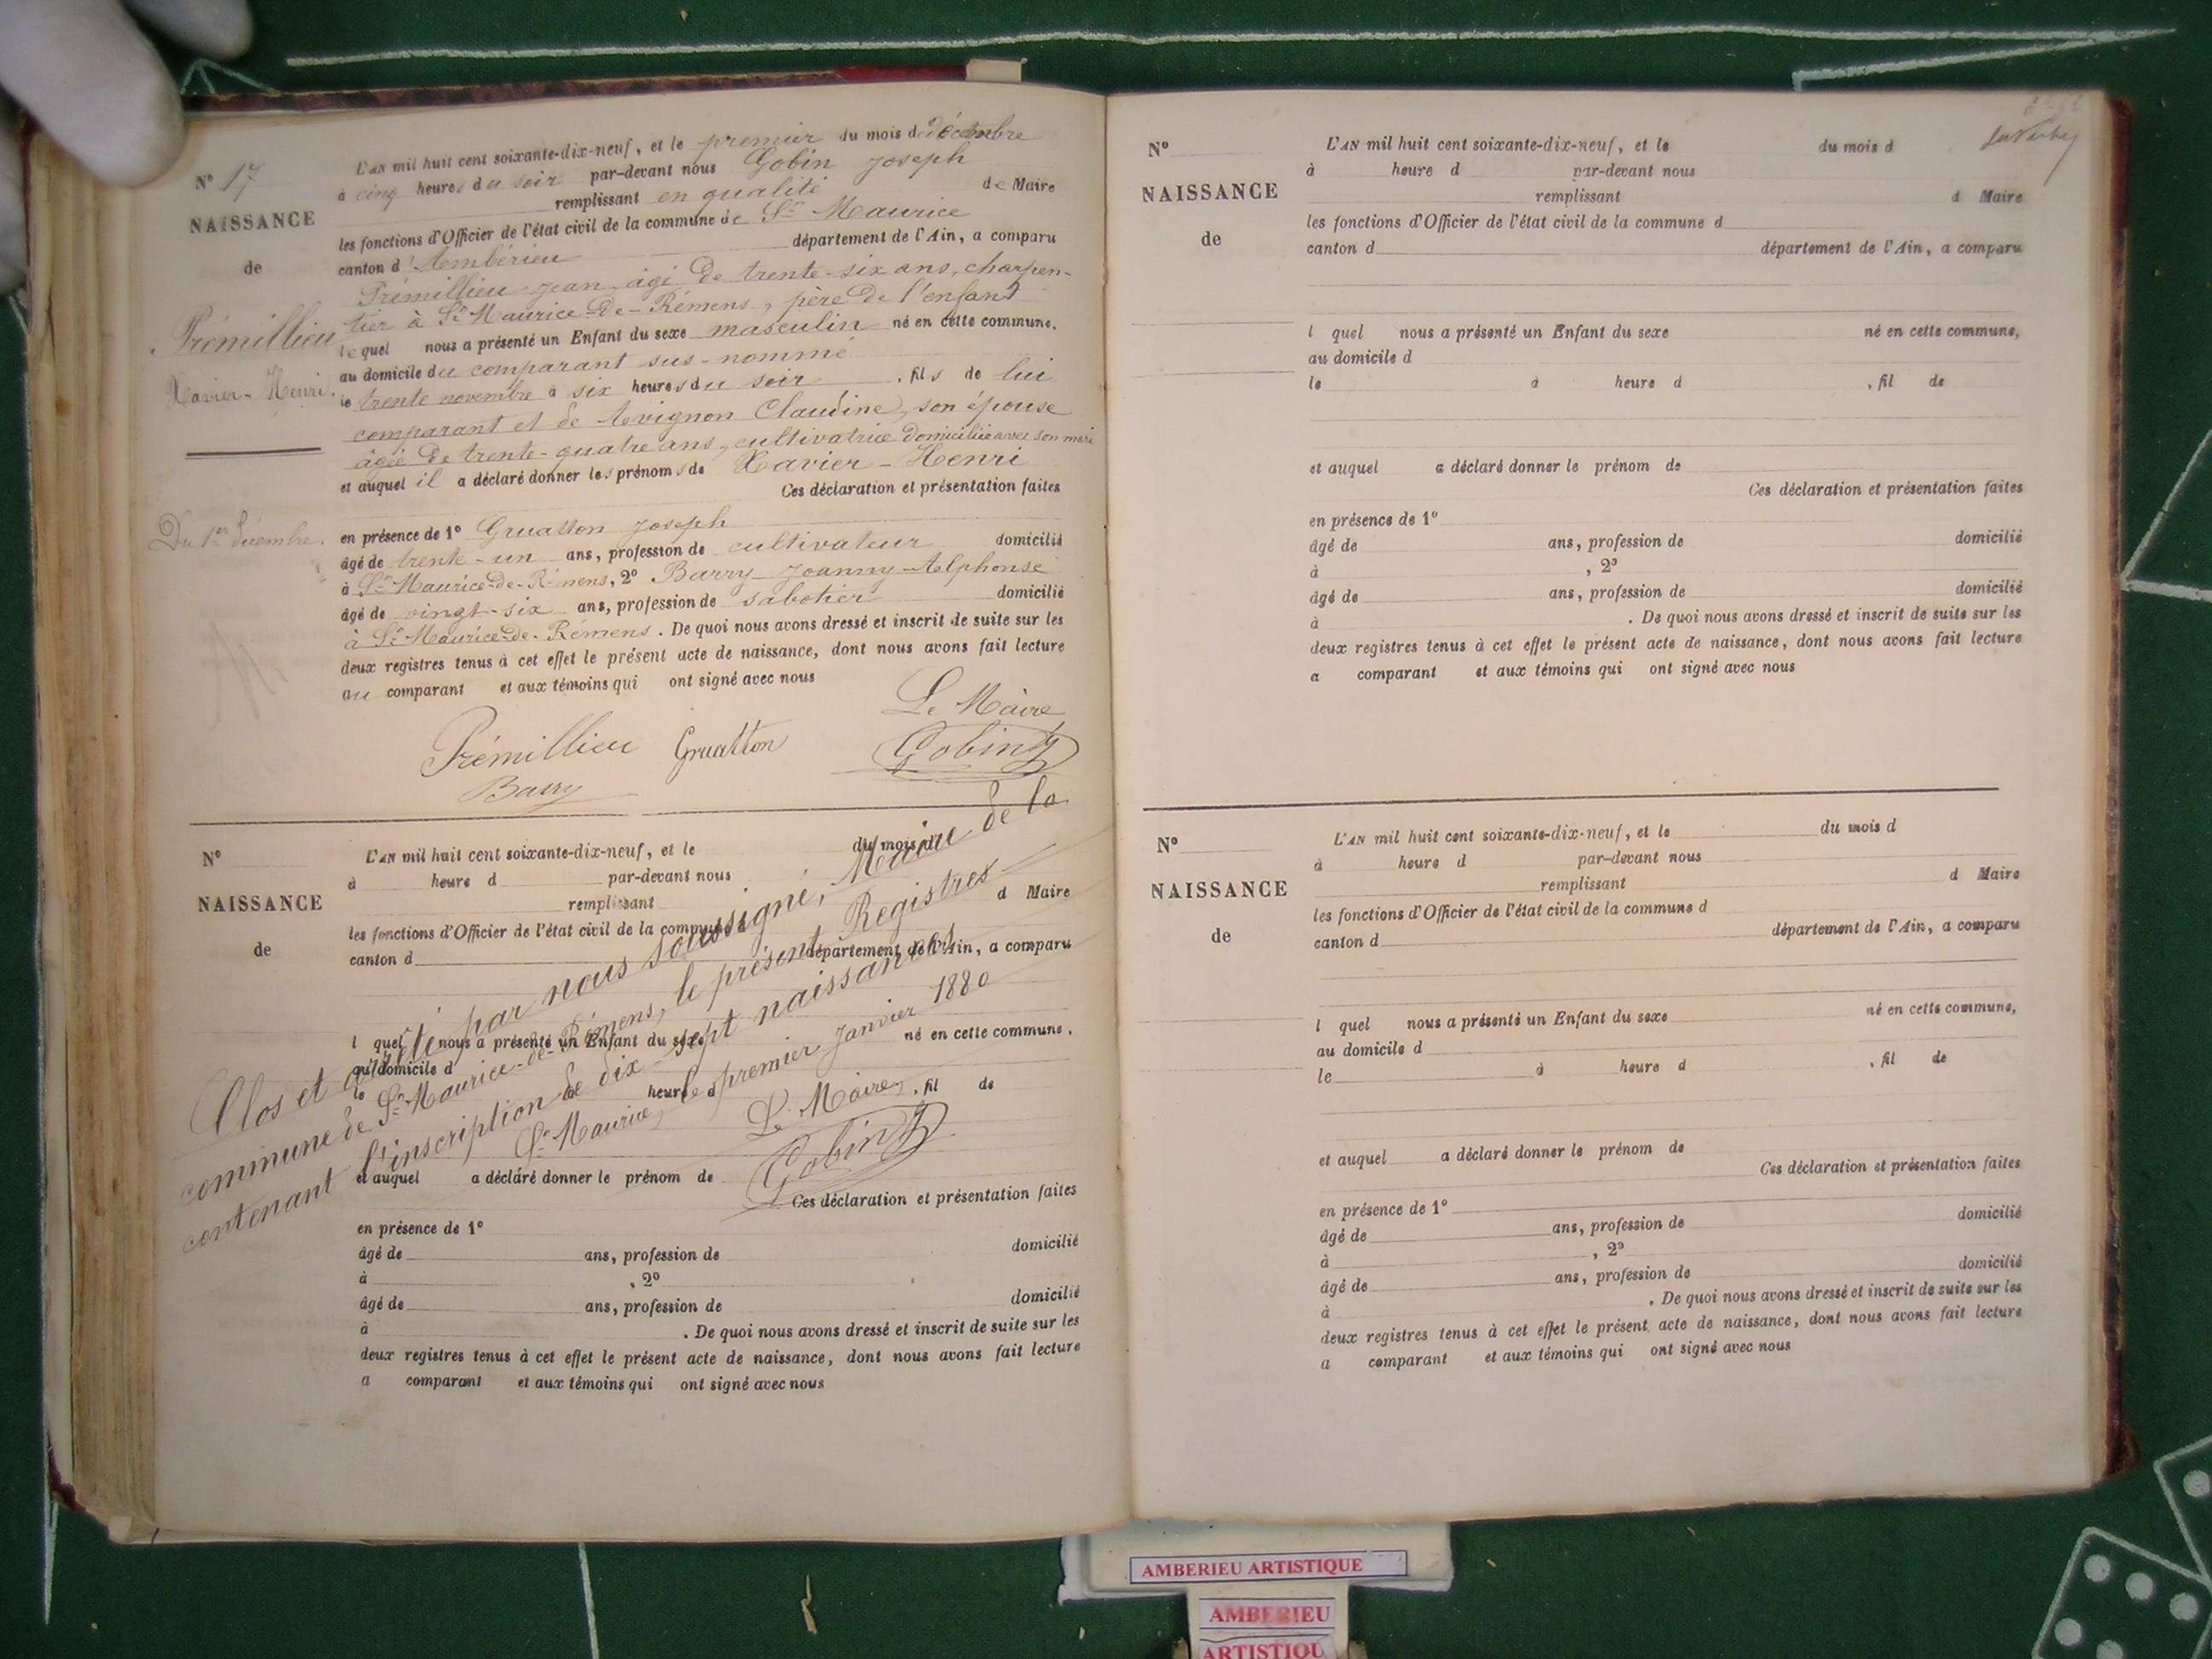 N° 17
NAISSANCE
de
Prémillieu
Xavier-Henri.
Du 1er Décembre.
L'AN mil huit cent soixante-dix-neuf, et le premier du mois de décembre
à cinq heures du soir par-devant nous Gobin Joseph
remplissant en qualité de Maire
les fonctions d'Officier de l'état civil de la commune de St Maurice
canton d'Ambérieu département de l'Ain, a comparu
Prémillieu Jean âgé de trente-six ans, charpen-
tier à St Maurice-de-Rémens, père de l'enfant
lequel nous a présenté un Enfant du sexe masculin né en cette commune,
au domicile du comparant sus-nommé
le trente novembre à six heures du soir, fils de lui
comparant et de Avignon Claudine, son épouse
âgée de trente-quatre ans, cultivatrice domiciliée avec son mari
et auquel il a déclaré donner les prénoms de Xavier-Henri
Ces déclaration et présentation faites
en présence de 1° Gruatton Joseph
âgé de trente-un ans, profession de cultivateur domicilié
à St Maurice-de-Rémens, 2° Barry Joanny-Alphonse
âgé de vingt-six ans, profession de sabotier domicilié
à St Maurice-de-Rémens. De quoi nous avons dressé et inscrit de suite sur les
deux registres tenus à cet effet le présent acte de naissance, dont nous avons fait lecture
au comparant et aux témoins qui ont signé avec nous
Le Maire
Prémillieu Gruatton Gobin
Barry
N°
NAISSANCE
de
L'AN mil huit cent soixante-dix-neuf, et le du mois d
à heure d par-devant nous
remplissant d Maire
les fonctions d'Officier de l'état civil de la commune d
canton d département de l'Ain, a comparu
l quel nous a présenté un Enfant du sexe né en cette commune,
au domicile d
le à heure d , fil de
et auquel a déclaré donner le prénom de
Ces déclaration et présentation faites
en présence de 1°
âgé de ans, profession de domicilié
à , 2°
âgé de ans, profession de domicilié
à . De quoi nous avons dressé et inscrit de suite sur les
deux registres tenus à cet effet le présent acte de naissance, dont nous avons fait lecture
a comparant et aux témoins qui ont signé avec nous
Clos et arrêté par nous soussigné, Maire de la
commune de St Maurice-de-Rémens, le présent Registres
contenant l'inscription de dix-sept naissances
St Maurice, le premier Janvier 1880
Le Maire,
Gobin
N°
NAISSANCE
de
L'AN mil huit cent soixante-dix-neuf, et le du mois d
à heure d par-devant nous
remplissant d Maire
les fonctions d'Officier de l'état civil de la commune d
canton d département de l'Ain, a comparu
l quel nous a présenté un Enfant du sexe né en cette commune,
au domicile d
le à heure d , fil de
et auquel a déclaré donner le prénom de
Ces déclaration et présentation faites
en présence de 1°
âgé de ans, profession de domicilié
à , 2°
âgé de ans, profession de domicilié
à . De quoi nous avons dressé et inscrit de suite sur les
deux registres tenus à cet effet le présent acte de naissance, dont nous avons fait lecture
a comparant et aux témoins qui ont signé avec nous
N°
NAISSANCE
de
L'AN mil huit cent soixante-dix-neuf, et le du mois d
à heure d par-devant nous
remplissant d Maire
les fonctions d'Officier de l'état civil de la commune d
canton d département de l'Ain, a comparu
l quel nous a présenté un Enfant du sexe né en cette commune,
au domicile d
le à heure d , fil de
et auquel a déclaré donner le prénom de
Ces déclaration et présentation faites
en présence de 1°
âgé de ans, profession de domicilié
à , 2°
âgé de ans, profession de domicilié
à . De quoi nous avons dressé et inscrit de suite sur les
deux registres tenus à cet effet le présent acte de naissance, dont nous avons fait lecture
a comparant et aux témoins qui ont signé avec nous
AMBERIEU ARTISTIQUE
AMBERIEU
ARTISTIQU